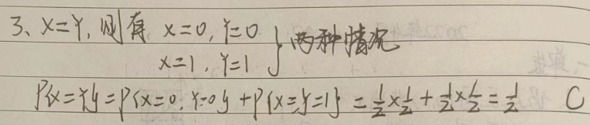 3、X=Y, 则有 X=0, Y=0
X=1, Y=1 } 两种情况
P{X=Y}=P{X=0, Y=0}+P{X=Y=1}=½×½+½×½=½ C